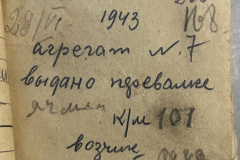 29/VI 1943 №8
агрегат N. 7
выдано перевалке
ячмен
к/м 107
возчик